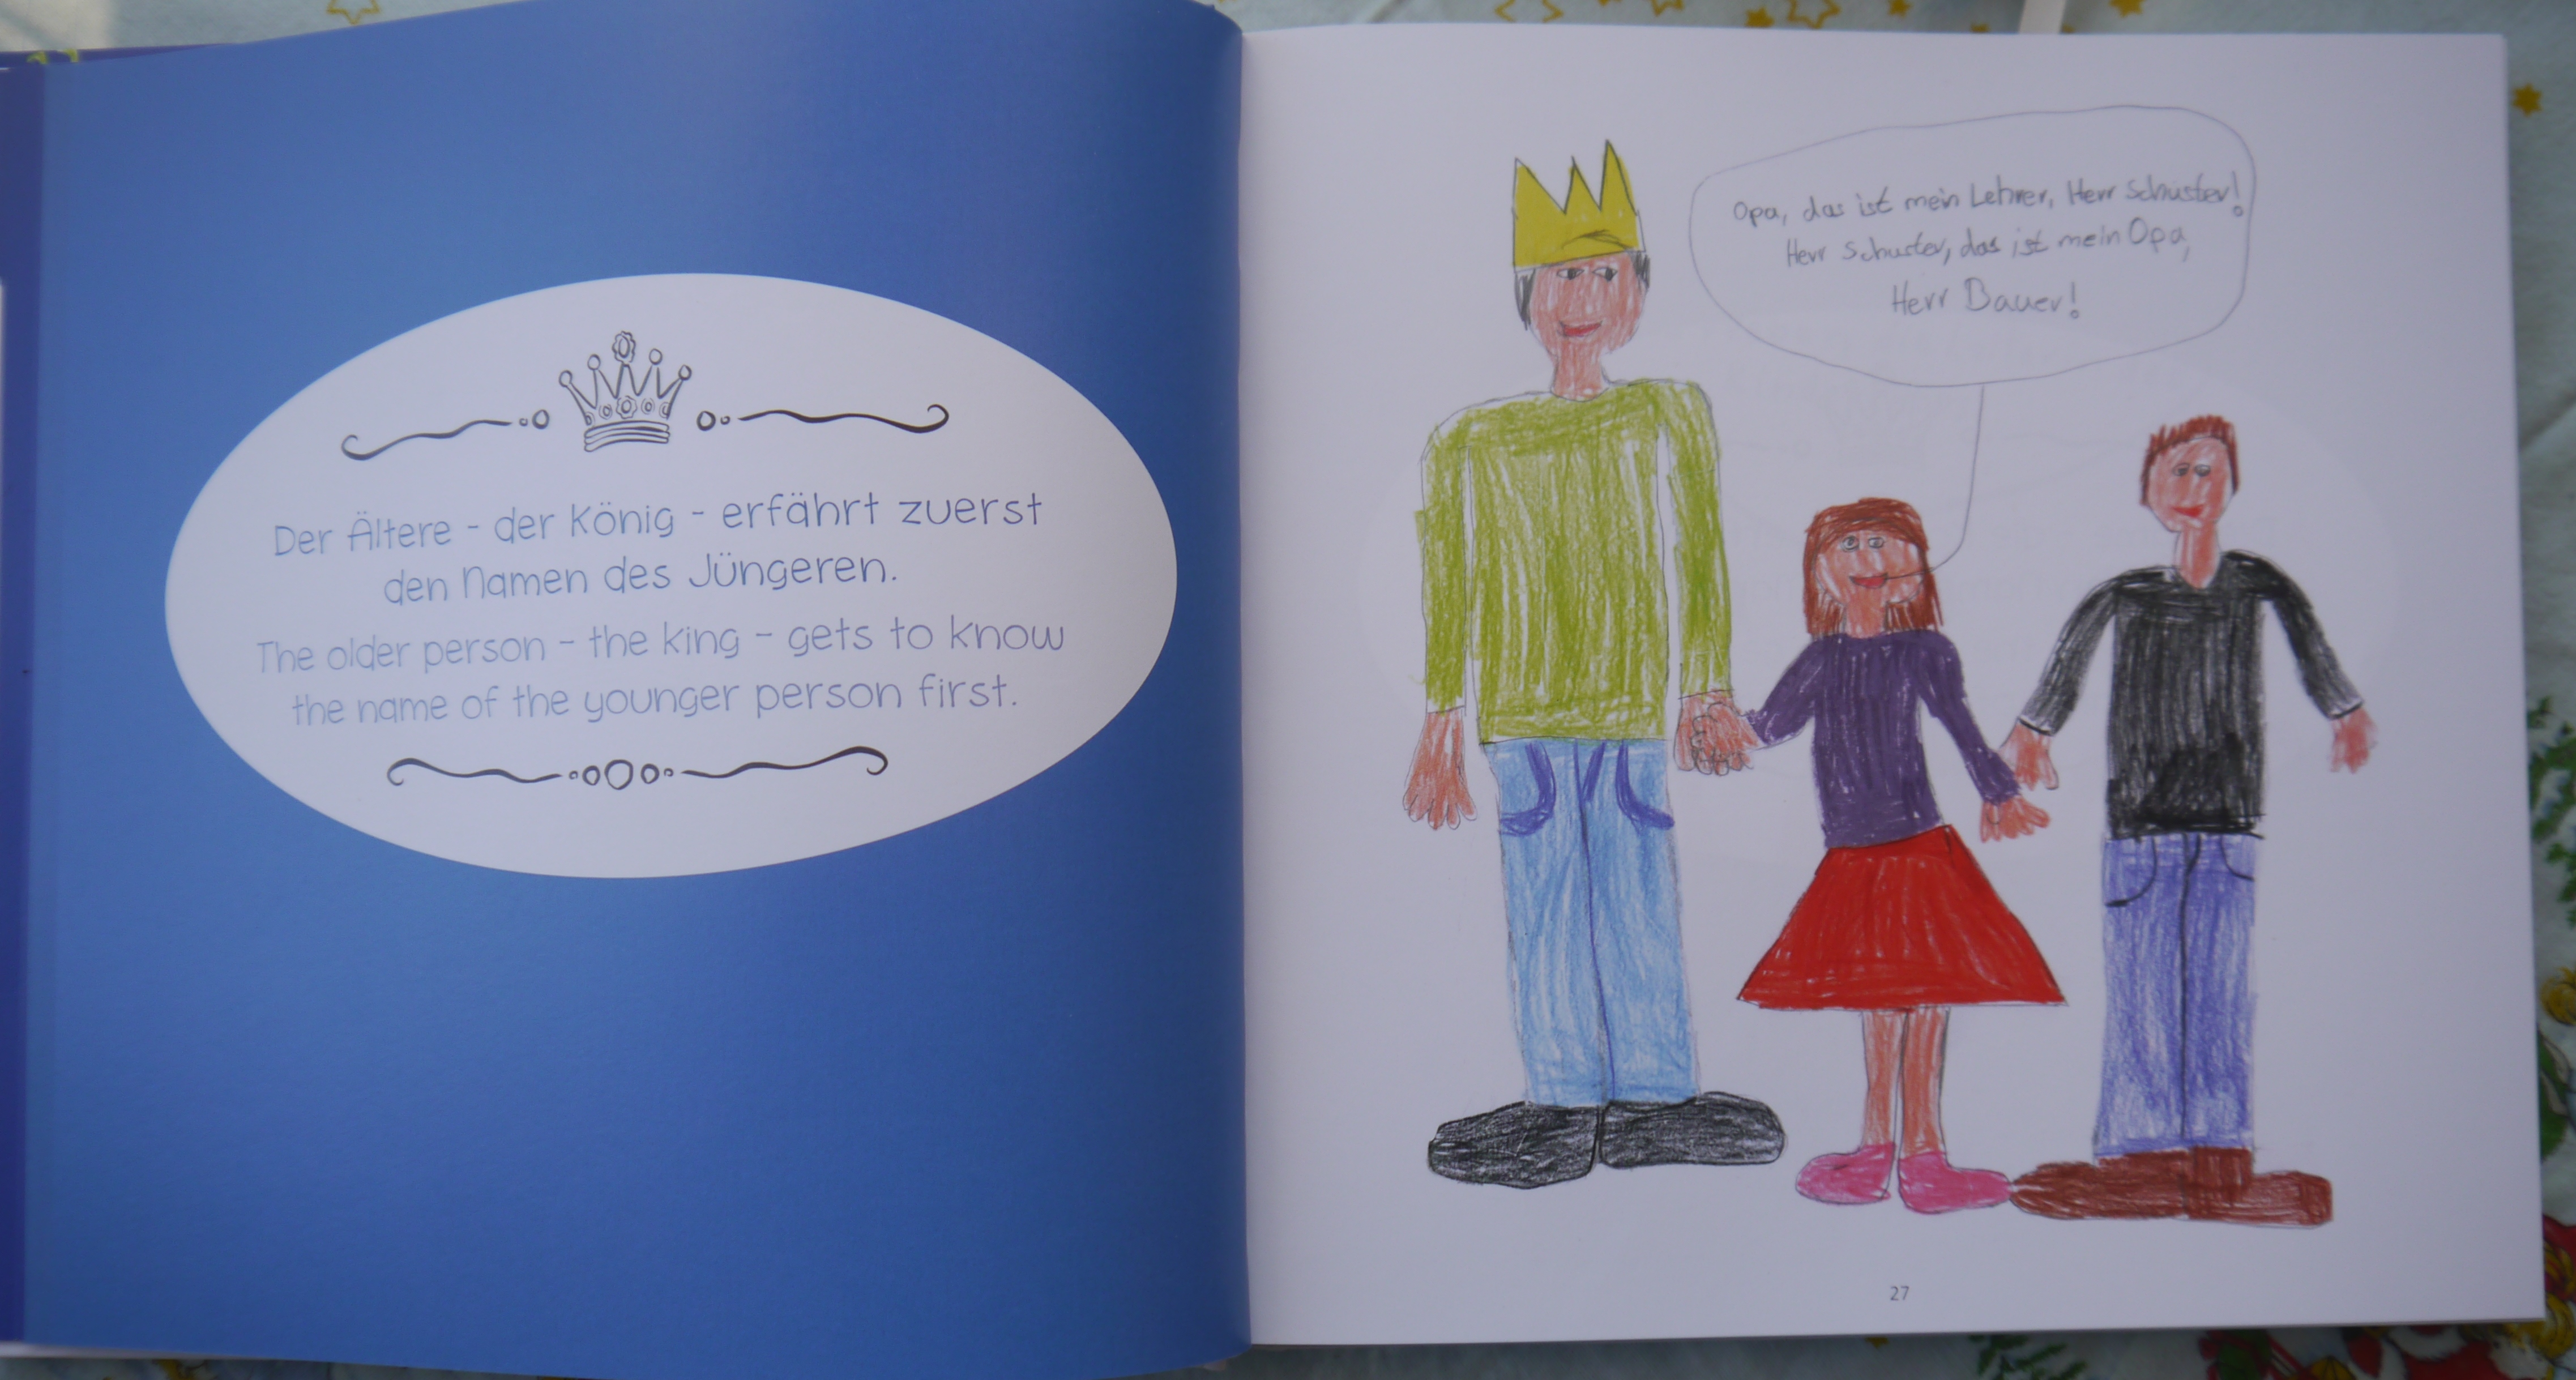 Der Ältere - der König - erfährt zuerst
den Namen des Jüngeren.
The older person - the king - gets to know
the name of the younger person first.
Opa, das ist mein Lehrer, Herr Schuster!
Herr Schuster, das ist mein Opa,
Herr Bauer!
27